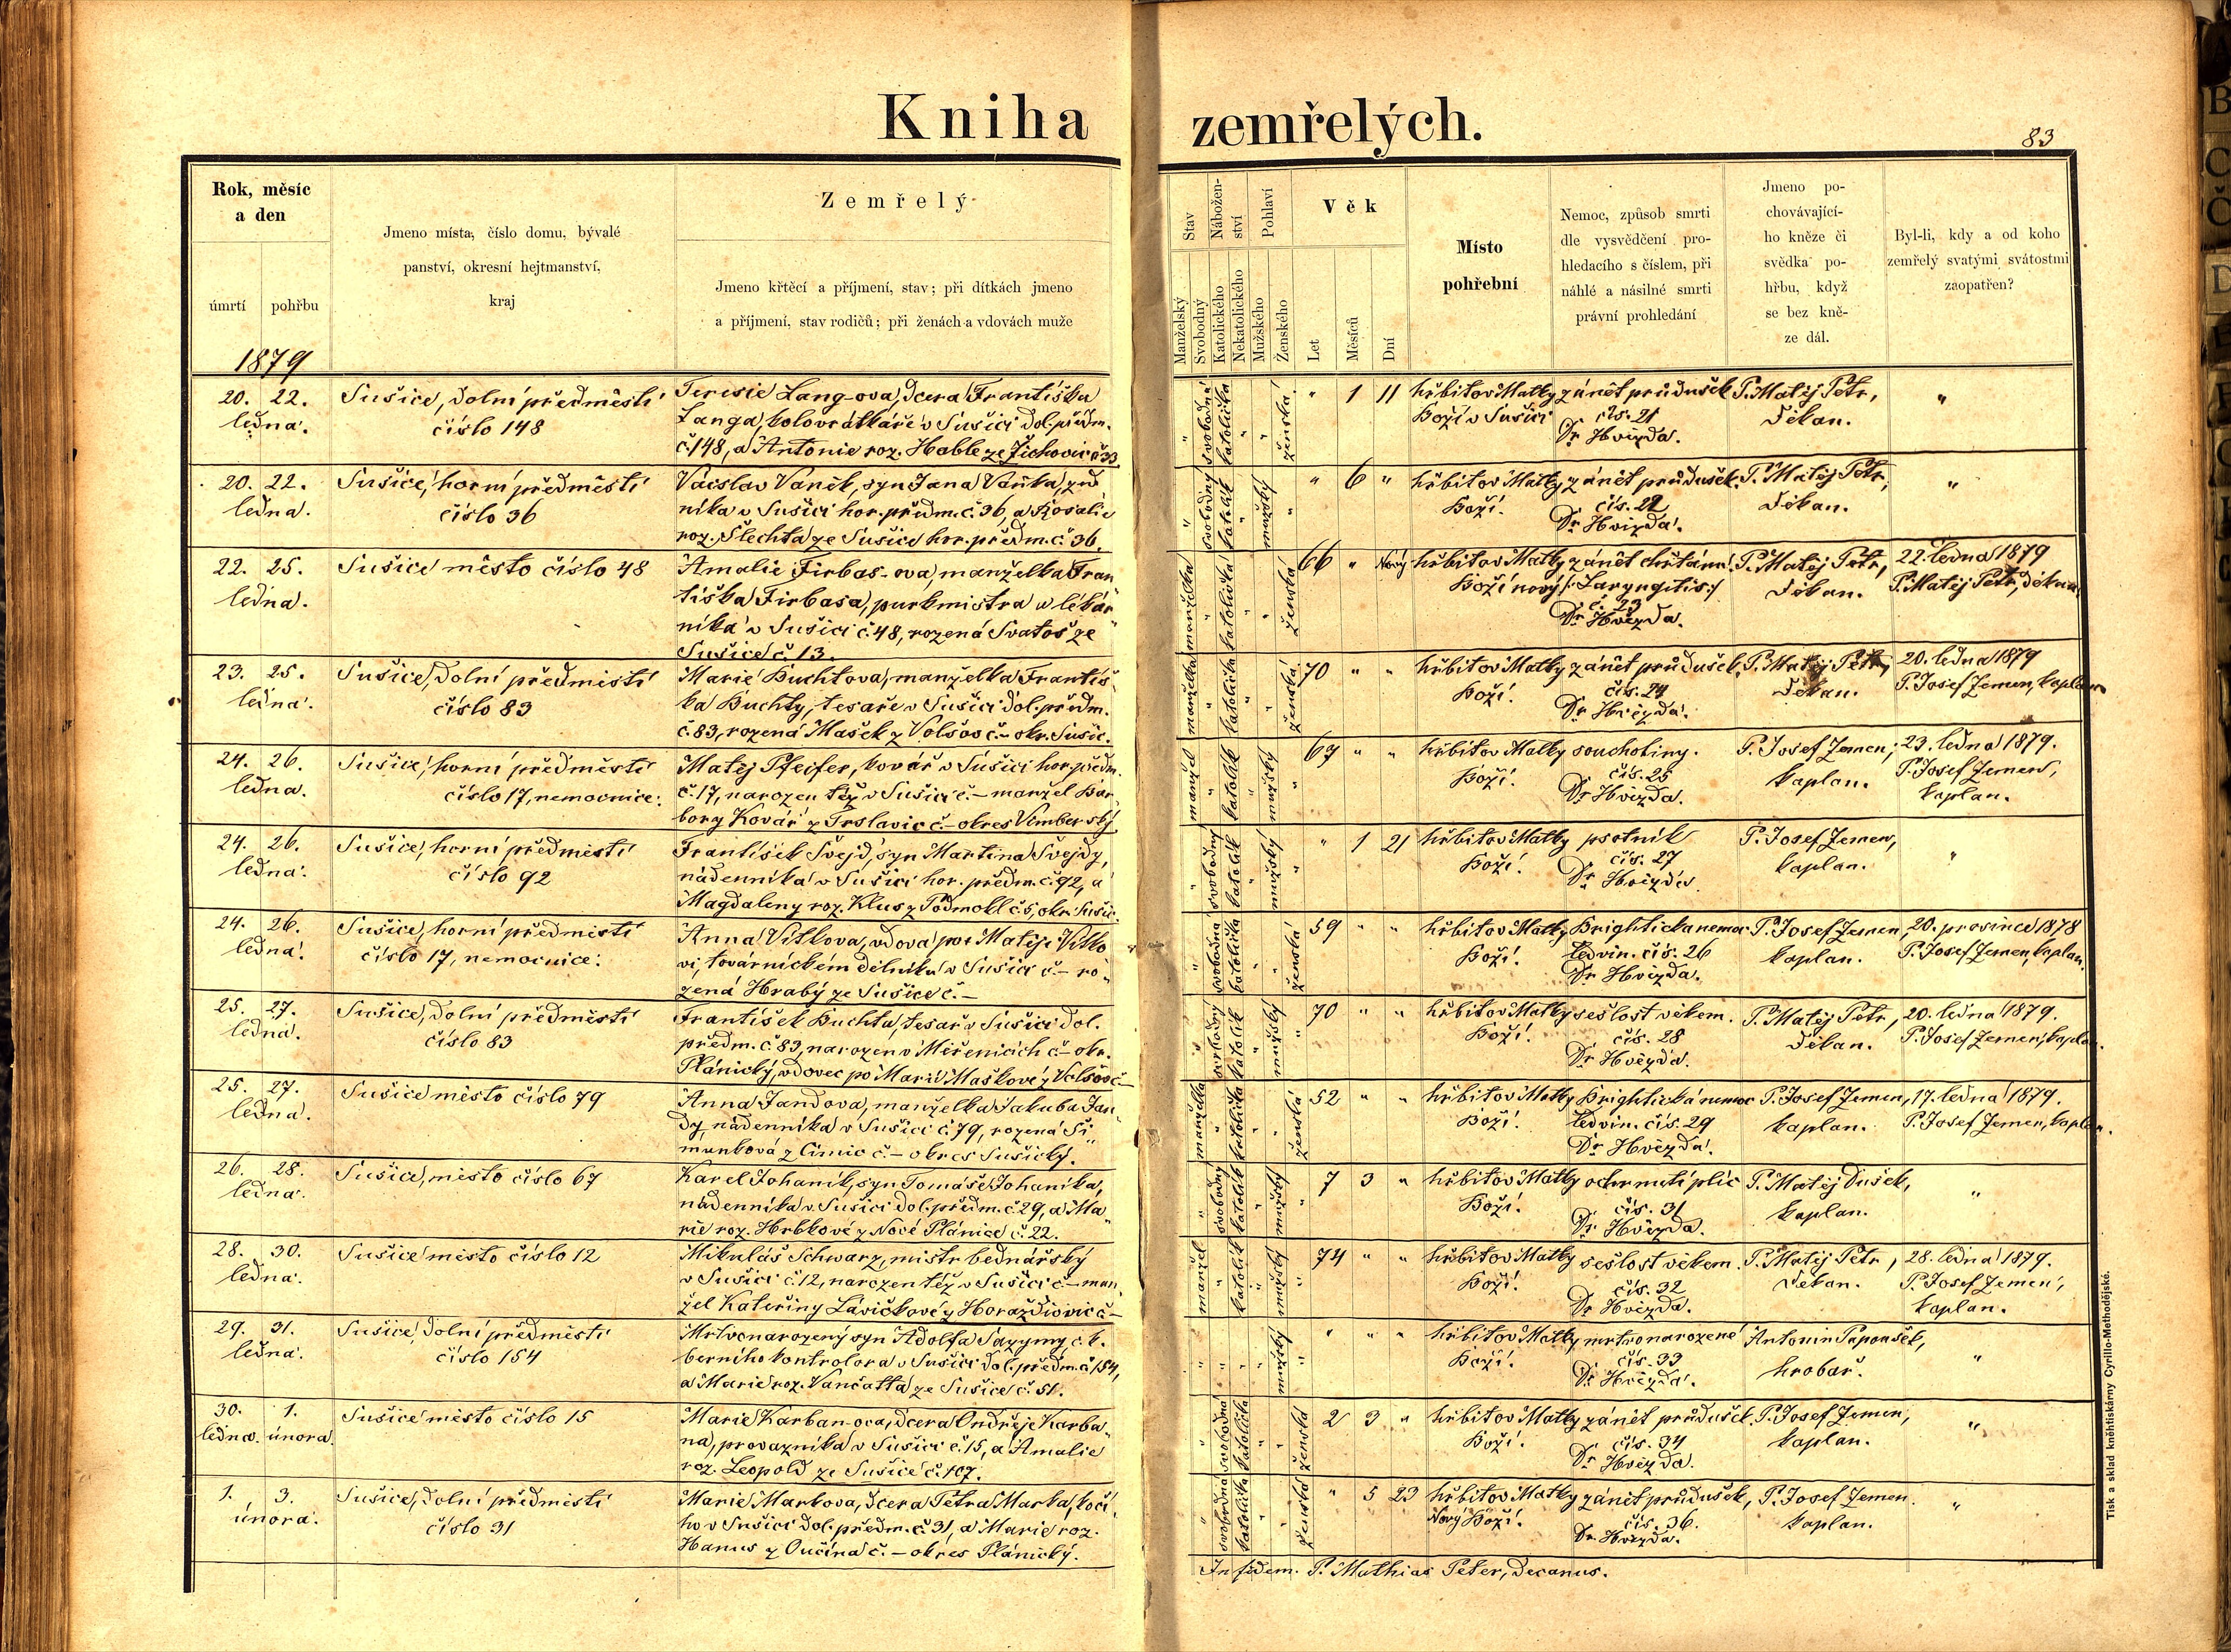 Kniha zemřelých.
83
Rok, měsíc
a den
úmrtí
pohřbu
1879
Jmeno místa, číslo domu, bývalé
panství, okresní hejtmanství,
kraj
Zemřelý
Jmeno křtěcí a příjmení, stav; při dítkách jmeno
a příjmení, stav rodičů; při ženách a vdovách muže
Stav
Manželský
Svobodný
Nábožen-
ství
Katolického
Nekatolického
Pohlaví
Mužského
Ženského
Věk
Let
Měsíců
Dní
Místo
pohřební
Nemoc, způsob smrti
dle vysvědčení pro-
hledacího s číslem, při
náhlé a násilné smrti
právní prohledání
Jmeno po-
chovávající-
ho kněze či
svědka po-
hřbu, když
se bez kně-
ze dál.
Byl-li, kdy a od koho
zemřelý svatými svátostmi
zaopatřen?
20. 22.
ledna.
Sušice, dolní předměstí
číslo 148
Teresie Lang-ova, dcera Františka
Langa, kolovrátkáře v Sušici dol. předm.
č. 148, a Antonie roz. Hable ze Žichovic č 33
" svobodná katolička " " ženská " 1 11
hřbitov Matky
Boží v Sušici
zánět průdušek
čís. 21
Dr Hvězda.
P. Matěj Petr,
děkan.
"
20. 22.
ledna.
Sušice, horní předměstí
číslo 36
Václav Vaněk, syn Jana Vaňka, zed
níka v Sušici hor. předm. č. 36, a Rosalie
roz. Šlechta ze Sušice hor. předm. č 36.
" svobodný katolík " mužský " " 6 "
hřbitov Matky
Boží.
zánět průdušek.
čís. 22
Dr Hvězda.
P. Matěj Petr,
děkan.
"
22. 25.
ledna.
Sušice město číslo 48
Amalie Firbas-ova, manželka Fran
tiška Firbasa, purkmistra a lékár
níka v Sušici č. 48, rozená Svatoš ze
Sušice č. 13.
manželka " katolička " " ženská 66 "
hřbitov Matky
Boží nový
zánět chřtánu
/: Laryngitis :/
č. 23
Dr Hvězda.
P. Matěj Petr,
děkan.
22. ledna 1879
P. Matěj Petr, děkan
23. 25.
ledna.
Sušice, dolní předměstí
číslo 83
Marie Buchtova, manželka Františ
ka Buchty, tesaře v Sušici dol. předm.
č. 83, rozená Mašek z Volšov č.- okr. Sušic.
manželka " katolička " " ženská 70 " "
hřbitov Matky
Boží.
zánět průdušek,
čís. 24
Dr Hvězda.
P. Matěj Petr,
děkan.
20. ledna 1879
P. Josef Zemen, kaplan
24. 26.
ledna.
Sušice, horní předměstí
číslo 17, nemocnice.
Matěj Pfeifer, kovář v Sušici hor. předm.
č. 17, narozen též v Sušici č.- manžel Bar
bory Kovář z Trslavic č.- okres Vimberský.
manžel " katolík " mužský " 67 " "
hřbitov Matky
Boží.
souchotiny.
čís. 25
Dr Hvězda.
P. Josef Zemen,
kaplan.
23. ledna 1879.
P. Josef Zemen,
kaplan.
24. 26.
ledna.
Sušice, horní předměstí
číslo 92
František Švejd, syn Martina Švejdy,
nádenníka v Sušici hor. předm. č. 92, a
Magdaleny roz. Klus z Podmokl č. 5, okr. Sušic.
" svobodný katolík " mužský " " 1 21
hřbitov Matky
Boží.
psotník
čís. 27
Dr Hvězda.
P. Josef Zemen,
kaplan.
"
24. 26.
ledna.
Sušice, horní předměstí
číslo 17, nemocnice.
Anna Vítkova, vdova po Matěji Vítko
vi, továrnickém dělníku v Sušici č.- ro
zená Hrabý ze Sušice č.-
" svobodná katolička " " ženská 59 " "
hřbitov Matky
Boží.
Brightická nemoc
ledvin. čís. 26
Dr Hvězda.
P. Josef Zemen,
kaplan.
20. prosince 1878
P. Josef Zemen, kaplan.
25. 27.
ledna.
Sušice, dolní předměstí
číslo 83
František Buchta, tesař v Sušici dol.
předm. č 83, narozen v Měřenicích č- okr.
Plánický, vdovec po Marii Maškové z Volšov č-
" svobodný katolík " mužský " 70 " "
hřbitov Matky
Boží.
sešlost věkem.
čís. 28
Dr Hvězda.
P. Matěj Petr,
děkan.
20. ledna 1879.
P. Josef Zemen, kaplan.
25. 27.
ledna.
Sušice město číslo 79
Anna Jandova, manželka Jakuba Jan
dy, nádenníka v Sušici č. 79, rozená Ši
munková z Čimic č.- okres Sušický.
manželka " katolička " " ženská 52 " "
hřbitov Matky
Boží.
Brightická nemoc
ledvin. čís. 29
Dr Hvězda.
P. Josef Zemen,
kaplan.
17. ledna 1879.
P. Josef Zemen, kaplan.
26. 28.
ledna.
Sušice, město číslo 67
Karel Johaník, syn Tomáše Johaníka,
nádenníka v Sušici dol. předm. č 29, a Ma
rie roz. Hrbkové z Nové Plánice č. 22.
" svobodný katolík " mužský " 7 3 "
hřbitov Matky
Boží.
ochrnutí plic
čís. 31
Dr Hvězda.
P. Matěj Dušek,
kaplan.
"
28. 30.
ledna.
Sušice město číslo 12
Mikuláš Schwarz, mistr bednářský
v Sušici č. 12, narozen též v Sušici č- man
žel Kateřiny Lavičkové z Horažďovic č-
manžel " katolík " mužský " 74 " "
hřbitov Matky
Boží.
sešlost věkem.
čís. 32
Dr Hvězda.
P. Matěj Petr,
děkan.
28. ledna 1879.
P. Josef Zemen,
kaplan.
29. 31.
ledna.
Sušice, dolní předměstí
číslo 154
Mrtvonarozený syn Adolfa Sazymy, c. k.
berního kontrolora v Sušici dol. předm. č 154,
a Marie roz. Vančatta ze Sušice č. 51.
" " " " mužský " " " "
hřbitov Matky
Boží.
mrtvonarozené
čís. 33
Dr Hvězda.
Antonín Papoušek,
hrobař.
"
30. 1.
ledna. února.
Sušice město číslo 15
Marie Karban-ova, dcera Ondřeje Karba
na, provazníka v Sušici č. 15, a Amalie
roz. Leopold ze Sušice č. 107.
" svobodná katolička " " ženská 2 3 "
hřbitov Matky
Boží.
zánět průdušek.
čís. 34
Dr Hvězda.
P. Josef Zemen,
kaplan.
"
1. 3.
února.
Sušice, dolní předměstí
číslo 31
Marie Markova, dcera Petra Marka, kočí
ho v Sušici dol. předm. č 31, a Marie roz.
Hanus z Oučína č.- okres Plánický.
" svobodná katolička " " ženská " 5 23
hřbitov Matky
Nový Boží.
zánět průdušek,
čís. 36.
Dr Hvězda.
P. Josef Zemen.
kaplan.
"
In fidem. P. Mathias Peter, decanus.
Tisk a sklad knihtiskárny Cyrillo-Methodějské.